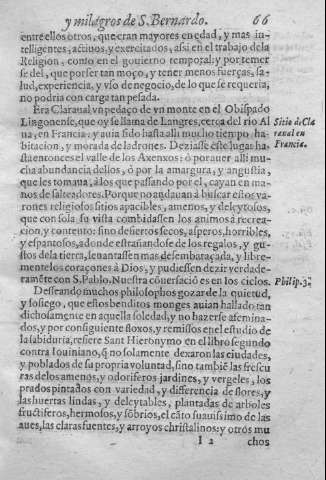 y milagros de S. Bernardo. 66
entre ellos otros, que eran mayores en edad, y mas in-
telligentes, actiuos, y exercitados, assi en el trabajo de la
Religion, como en el gouierno temporal: y por temer
se del, que por ser tan moço, y tener menos fuerças, sa-
lud, experiencia, y vso de negocio, de lo que se requeria,
no podria con carga tan pesada.
Era Claraual vn pedaço de vn monte en el Obispado
Lingonense, que oy se llama de Langres, cerca del rio Al
ua, en Francia: y auia sido hasta alli mucho tiempo ha-
bitacion, y morada de ladrones. Deziasse este lugar has
ta entonces el valle de los Axenxos: ò por auer alli mu-
cha abundancia dellos, ò por la amargura, y angustia,
que les tomaua, à los que passando por el, cayan en ma-
nos de salteadores. Porque no andauan à buscar estos va-
rones religiosos sitios apacibles, amenos, y deleytosos,
que con sola su vista combidassen los animos à recrea-
cion, y contento: sino desiertos secos, asperos, horribles,
y espantosos, adonde estrañandose de los regalos, y gu-
stos dela tierra, leuantassen mas desembaraçada, y libre-
mente los coraçones à Dios, y pudiessen dezir verdade-
ramẽte con S. Pablo. Nuestra cõuersació es en los cielos.
Desseando muchos philosophos gozar de la quietud,
y sosiego, que estos benditos monges auian hallado tan
dichosamente en aquella soledad, y no hazerse afemina-
dos, y por consiguiente floxos, y remissos en el estudio de
la sabiduria, refiere Sant Hieronymo en el libro segundo
contra Iouiniano, q̃ no solamente dexaron las ciudades,
y poblados de su propria voluntad, sino tambiẽ las frescu
ras delos amenos, y odoriferos jardines, y vergeles, los
prados pintados con variedad, y differencia de flores, y
las huertas lindas, y deleytables, plantadas de arboles
fructiferos, hermosos, y sõbrios, el cãto suauissimo de las
aues, las claras fuentes, y arroyos christalinos: y otros mu
I 2 chos
Sitio de Cla
raual en
Francia.
Philip. 3.